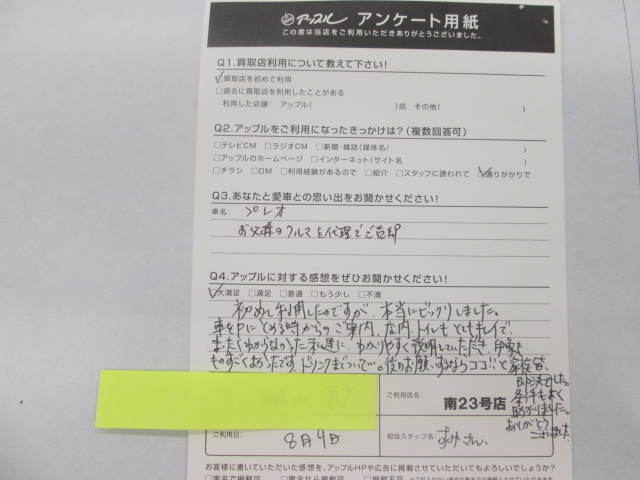 アップル アンケート用紙
この度は当店をご利用いただきありがとうございました。
Q1.買取店利用について教えて下さい!
☑買取店を初めて利用
□過去に買取店を利用したことがある
利用した店舗: アップル( )店 その他( )
Q2.アップルをご利用になったきっかけは?(複数回答可)
□テレビCM □ラジオCM □新聞・雑誌(媒体名/ )
□アップルのホームページ □インターネット(サイト名 )
□チラシ □DM □利用経験があるので □紹介 □スタッフに誘われて ☑通りがかりで
Q3.あなたと愛車との思い出をお聞かせください!
車名: プレオ
お父様のクルマを代理でご売却
Q4.アップルに対する感想をぜひお聞かせください!
☑大満足 □満足 □普通 □もう少し □不満
初めて利用したのですが、本当にビックリしました。
車を中にとめる時からのご案内、店内、トイレもとてもキレイで、
まったくわからなかった私達に、わかりやすく説明していただき 印象も
ものすごくよかったです。ドリンクまでついて…。次回お願いするならココ!!と家族皆、
即決でした。
条件も良く
助かりました。
ありがとう
ございました。
ご利用店名:
南23号店
ご利用日: 8月9日
担当スタッフ名 すみさん
お客様に書いていただいた感想を、アップルHPや広告に掲載させていただいてもよろしいでしょうか?
□実名で掲載可 □匿名なら掲載可 □掲載不可